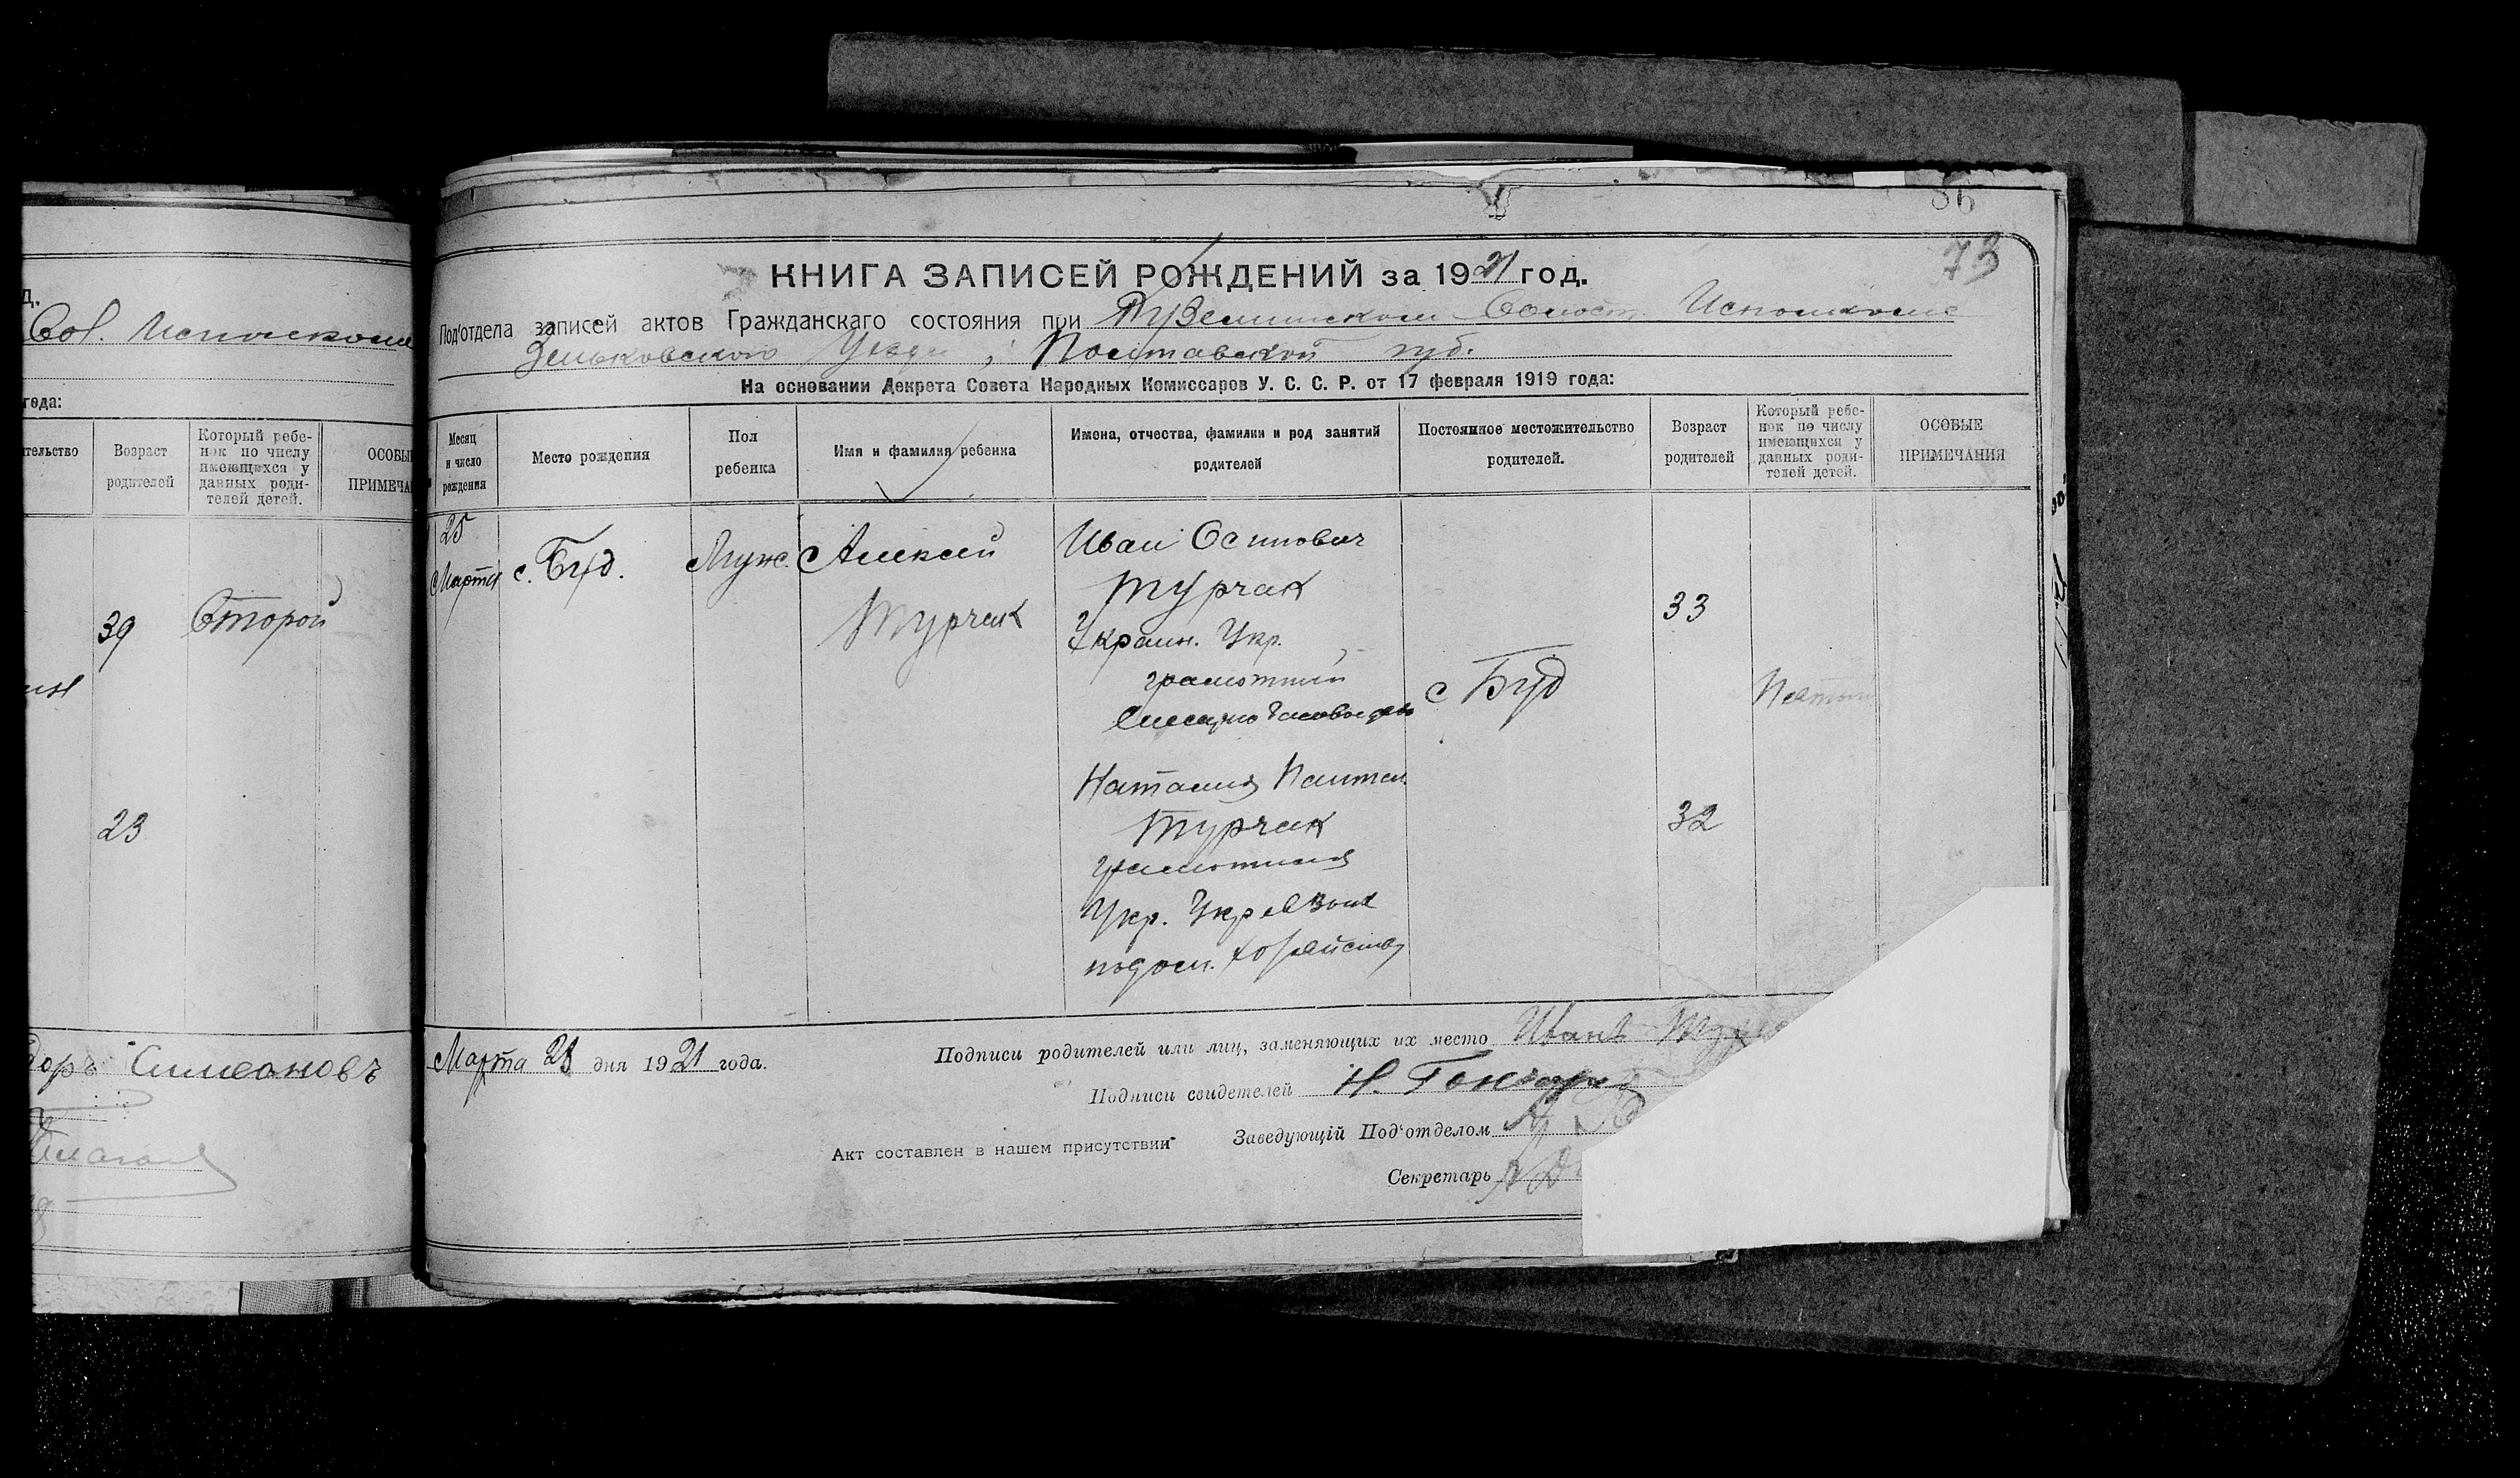 д.
Вол. Исполкоме
года:
тельство
Возраст
родителей
Который ребе-
нок по числу
имеющихся у
данных роди-
телей детей.
ОСОБЫ
ПРИМЕЧА
39
Второй
23
Симеоновъ
36
73
КНИГА ЗАПИСЕЙ РОЖДЕНИЙ за 1921 год.
Под‘отдела записей актов Гражданскаго состояния при Волост. Исполкоме
Зеньковского Уезда, Полтавской губ.
На основании Декрета Совета Народных Комиссаров У. С. С. Р. от 17 февраля 1919 года:
Месяц
и число
рождения
Место рождения
Пол
ребенка
Имя и фамилия ребенка
Имена, отчества, фамилии и род занятий
родителей
Постоянное местожительство
родителей.
Возраст
родителей
Который ребе-
нок по числу
имеющихся у
данных роди-
телей детей.
ОСОБЫЕ
ПРИМЕЧАНИЯ
25
Марта
с. Буд.
Муж.
Алексей
Турчак
Иван Осипович
Турчак
Украин. Укр.
грамотный
с Буд
33
Пятый
Наталия Пантел.
Турчак
грамотная
Укр. Укр. язык
домаш. хозяйство
32
Марта 28 дня 1921 года.
Подписи родителей или лиц, заменяющих их место Иванъ
Подписи свидетелей Н. Гончар
Акт составлен в нашем присутствии
Заведующій Под‘отделом
Секретарь